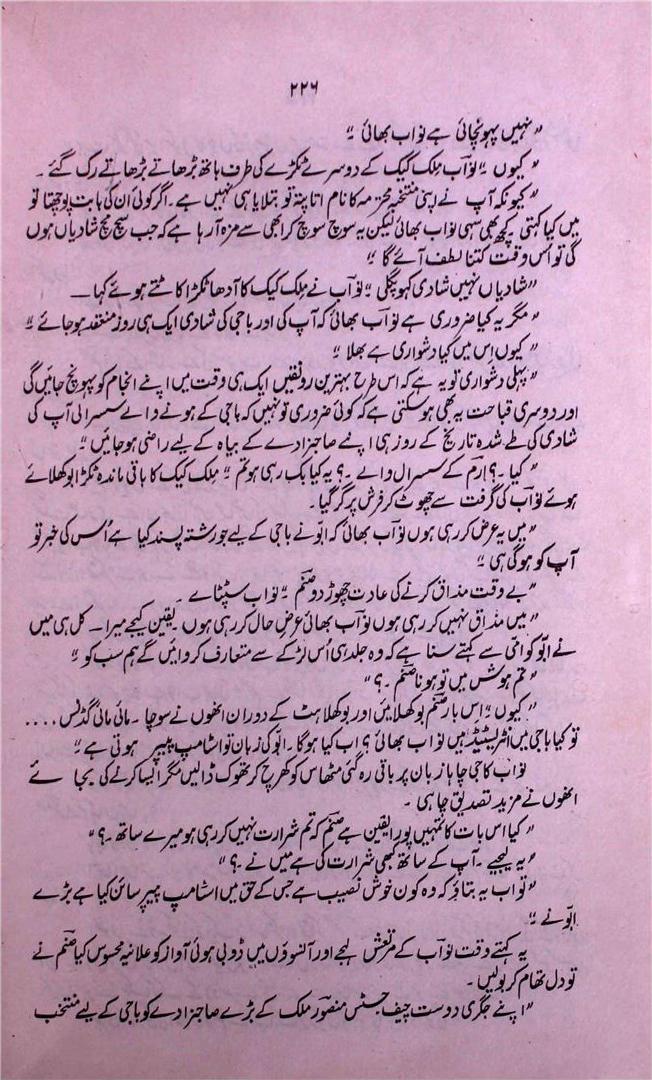 ۲۲۶
"نہیں پہونچائی ہے نوّاب بھائی۔"
"کیوں۔" نوّاب مِلک کیک کے دوسرے ٹکڑے کی طرف ہاتھ بڑھاتے بڑھاتے رک گئے۔
"کیونکہ آپ نے اپنی منتخبہ محترمہ کا نام اتا پتہ تو بتلایا ہی نہیں ہے۔ اگر کوئی ان کی بابت پوچھتا تو
میں کیا کہتی۔ کچھ بھی سہی نوّاب بھائی لیکن یہ سوچ سوچ کر ابھی سے مزہ آ رہا ہے کہ جب سچ مچ شادیاں ہوں
گی تو اُس وقت کتنا لطف آئے گا۔"
"شادیاں نہیں شادی کہو پگلی۔" نوّاب نے مِلک کیک کا آدھا ٹکڑا کاٹتے ہوئے کہا—
"مگر یہ کیا ضروری ہے نوّاب بھائی کہ آپ کی اور باجی کی شادی ایک ہی روز منعقد ہو جائے۔"
"کیوں اِس میں کیا دشواری ہے بھلا۔"
"پہلی دشواری تو یہ ہے کہ اس طرح بہترین رونقیں ایک ہی وقت میں اپنے انجام کو پہونچ جائیں گی
اور دوسری قباحت یہ بھی ہو سکتی ہے کہ کوئی ضروری تو نہیں کہ باجی کے ہونے والے سسرالی آپ کی
شادی کی طے شدہ تاریخ کے روز ہی اپنے صاحبزادے کے بیاہ کے لیے راضی ہو جائیں۔"
"کیا۔؟ اِرَم کے سسرال والے۔؟ یہ کیا بک رہی ہو تم۔" مِلک کیک کا باقی ماندہ ٹکڑا بوکھلائے
ہوئے نوّاب کی گرفت سے چھوٹ کر فرش پر گر گیا۔
"میں یہ عرض کر رہی ہوں نوّاب بھائی کہ ابّو نے باجی کے لیے جو رشتہ پسند کیا ہے اُس کی خبر تو
آپ کو ہو گی ہی۔"
"بے وقت مذاق کرنے کی عادت چھوڑ دو صنم۔" نوّاب سٹپٹائے۔
"میں مذاق نہیں کر رہی ہوں نوّاب بھائی عرضِ حال کر رہی ہوں۔ یقین کیجیے میرا — کل ہی میں
نے ابّو کو امّی سے کہتے سنا ہے کہ وہ جلد ہی اُس لڑکے سے متعارف کروائیں گے ہم سب کو۔"
"تم ہوش میں تو ہو نا صنم۔؟"
"کیوں۔" اس بار صنم بوکھلائیں اور بوکھلاہٹ کے دوران انھوں نے سوچا۔ مائی مائی گڈنس....
تو کیا باجی میں انٹریسٹیڈ ہیں نوّاب بھائی؟ اب کیا ہوگا۔ ابّو کی زبان تو اسٹامپ پیپر ہوتی ہے۔"
نوّاب کا جی چاہا زبان پر باقی رہ گئی مٹھاس کو کھرچ کر تھوک ڈالیں مگر ایسا کرنے کی بجائے
انھوں نے مزید تصدیق چاہی۔
"کیا اس بات کا تمہیں پورا یقین ہے صنم کہ تم شرارت نہیں کر رہی ہو میرے ساتھ۔؟"
"یہ لیجیے۔ آپ کے ساتھ کبھی شرارت کی ہے میں نے۔؟"
"تو اب یہ بتاؤ کہ وہ کون خوش نصیب ہے جس کے حق میں اسٹامپ پیپر سائن کیا ہے بڑے
ابّو نے۔"
یہ کہتے وقت نوّاب کے مرتعش لہجے اور آنسوؤں میں ڈوبی ہوئی آواز کو علانیہ محسوس کیا صنم نے
تو دل تھام کر بولیں۔
"اپنے جگری دوست چیف جسٹس منصور مَلک کے بڑے صاحبزادے کو باجی کے لیے منتخب